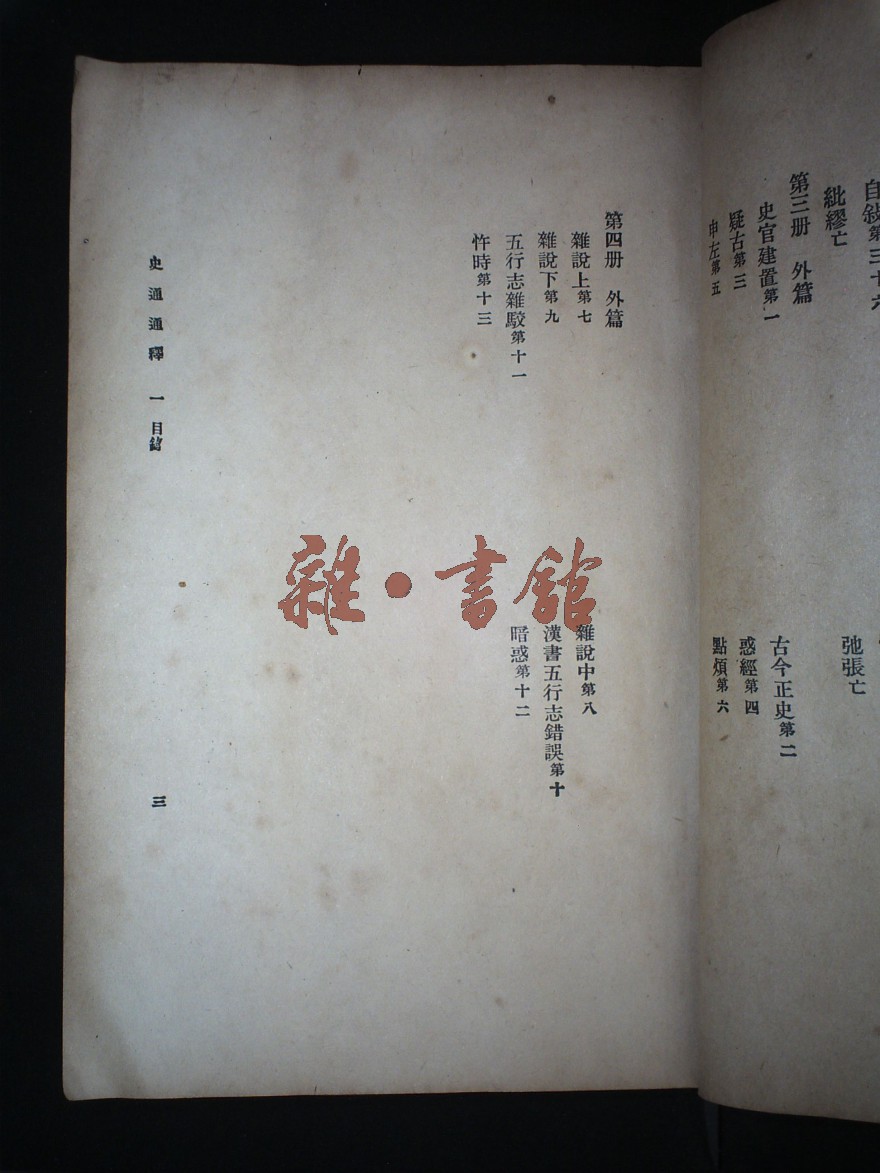 自敍第三十六
紕繆亡
弛張亡
第三册 外篇
史官建置第一
古今正史第二
疑古第三
惑經第四
申左第五
點煩第六
第四册 外篇
雜說上第七
雜說中第八
雜說下第九
漢書五行志錯誤第十
五行志雜駁第十一
暗惑第十二
忤時第十三
史通通釋 一 目錄
三
雜·書館